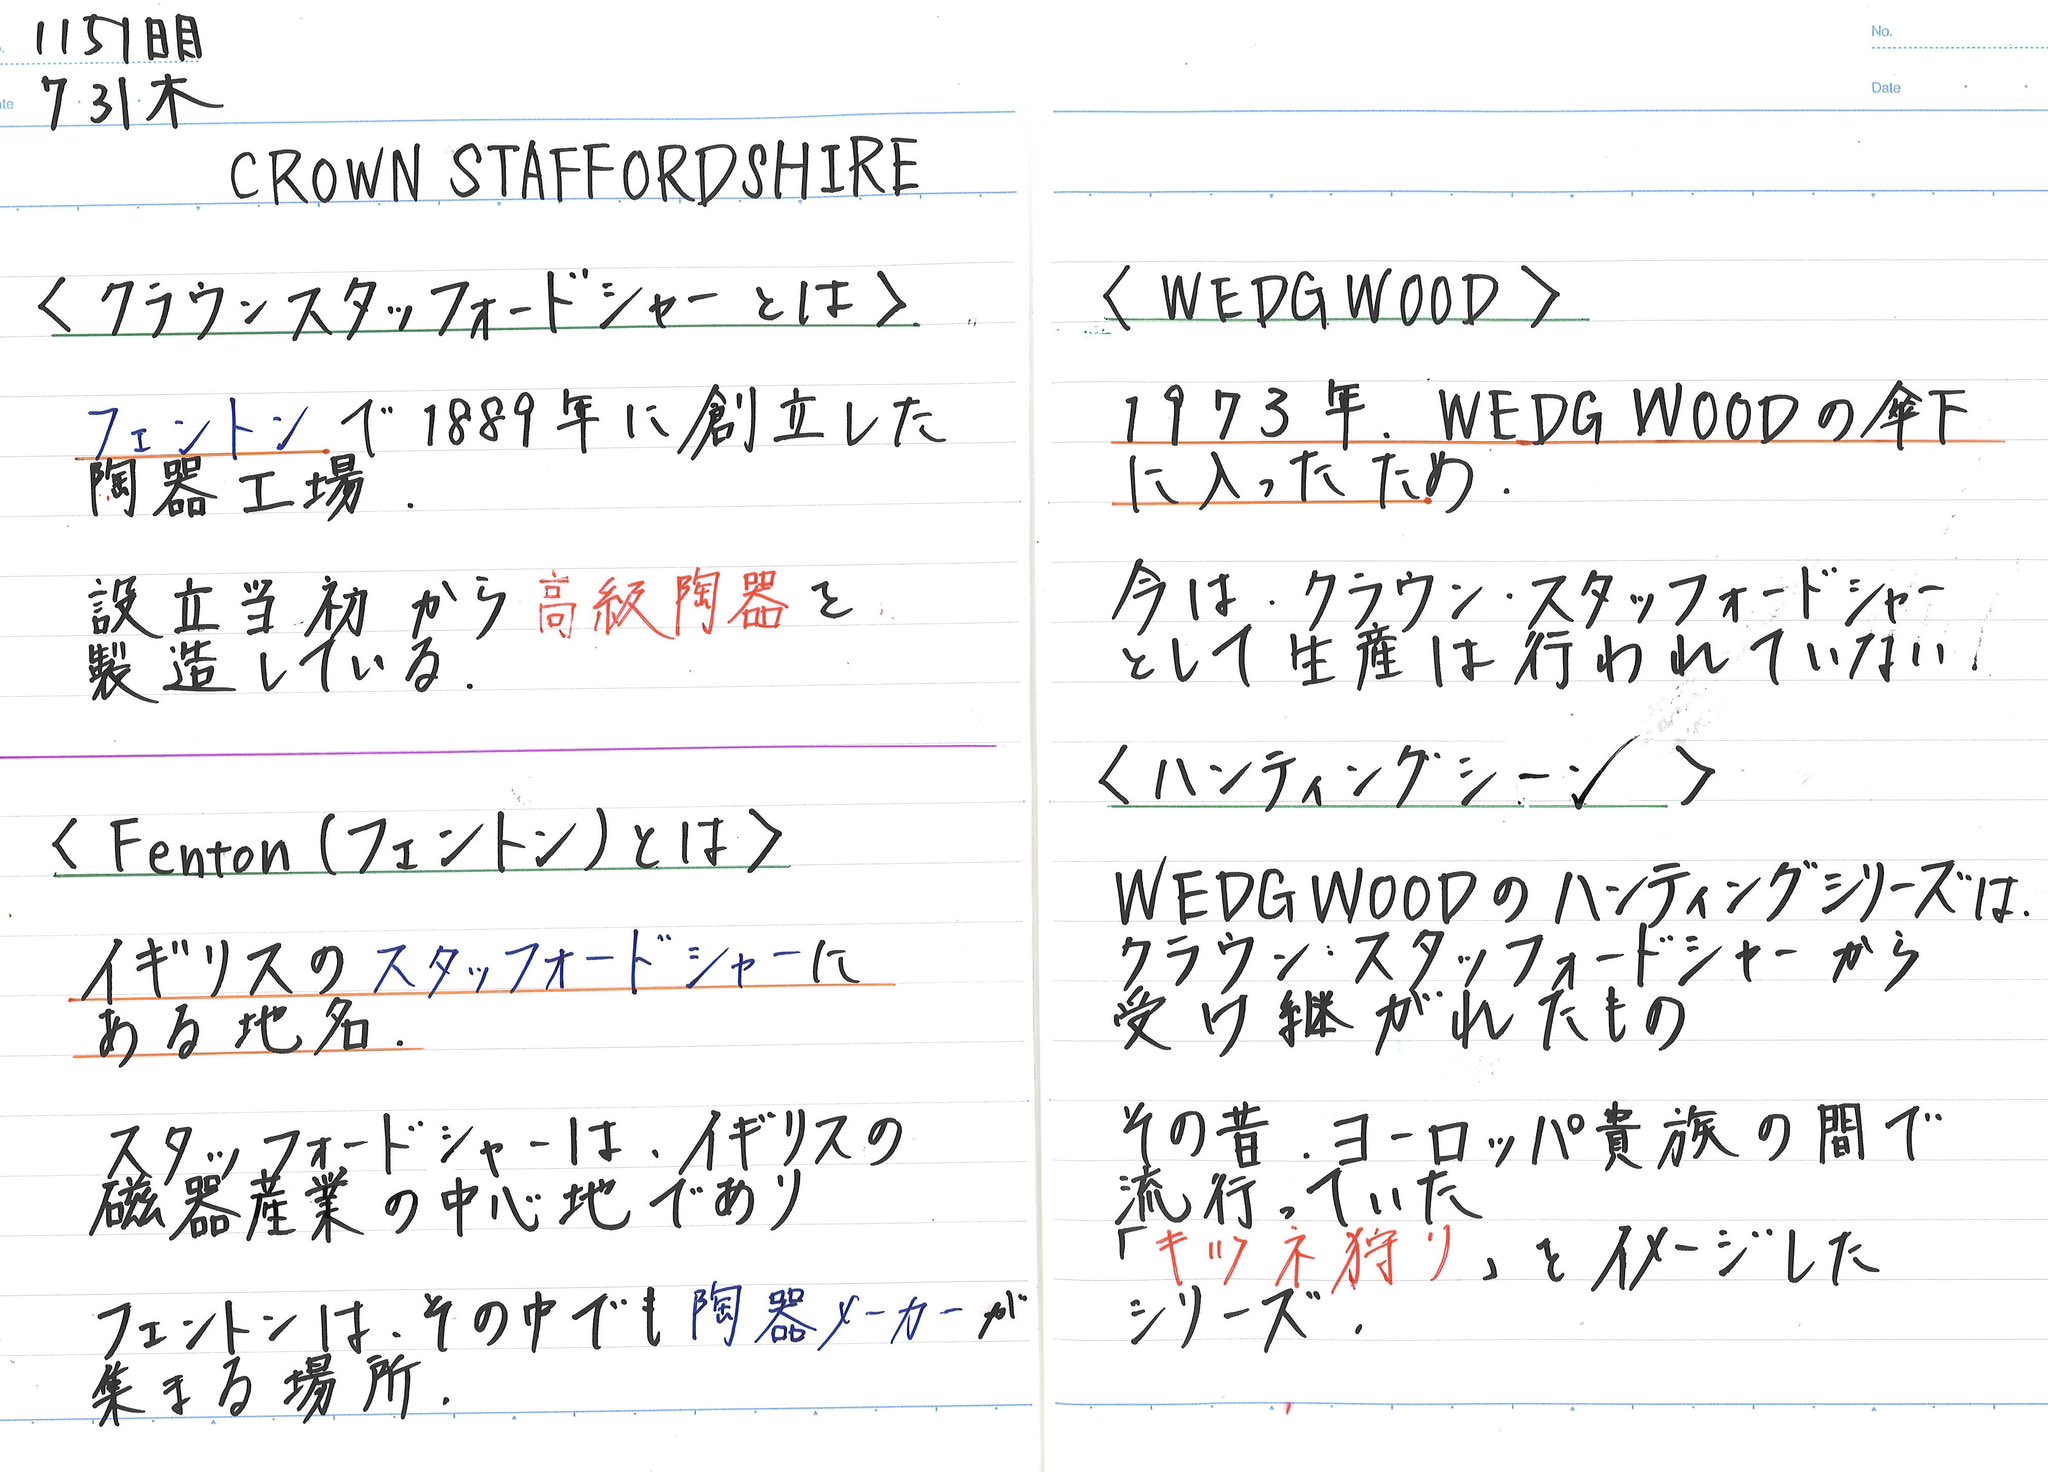 1151日目
7 31 木
CROWN STAFFORDSHIRE
<クラウンスタッフォードシャーとは>
フェントンで1889年に創立した
陶器工場.
設立当初から高級陶器を
製造している.
<Fenton(フェントン)とは>
イギリスのスタッフォードシャーに
ある地名.
スタッフォードシャーは、イギリスの
磁器産業の中心地であり
フェントンは、その中でも陶器メーカーが
集まる場所.
No.
Date
<WEDGWOOD>
1973年、WEDGWOODの傘下
に入ったため.
今は、クラウン・スタッフォードシャー
として生産は行われていない.
<ハンティングシーン>
WEDGWOODのハンティングシリーズは、
クラウン・スタッフォードシャーから
受け継がれたもの
その昔、ヨーロッパ貴族の間で
流行っていた
「キツネ狩り」をイメージした
シリーズ.